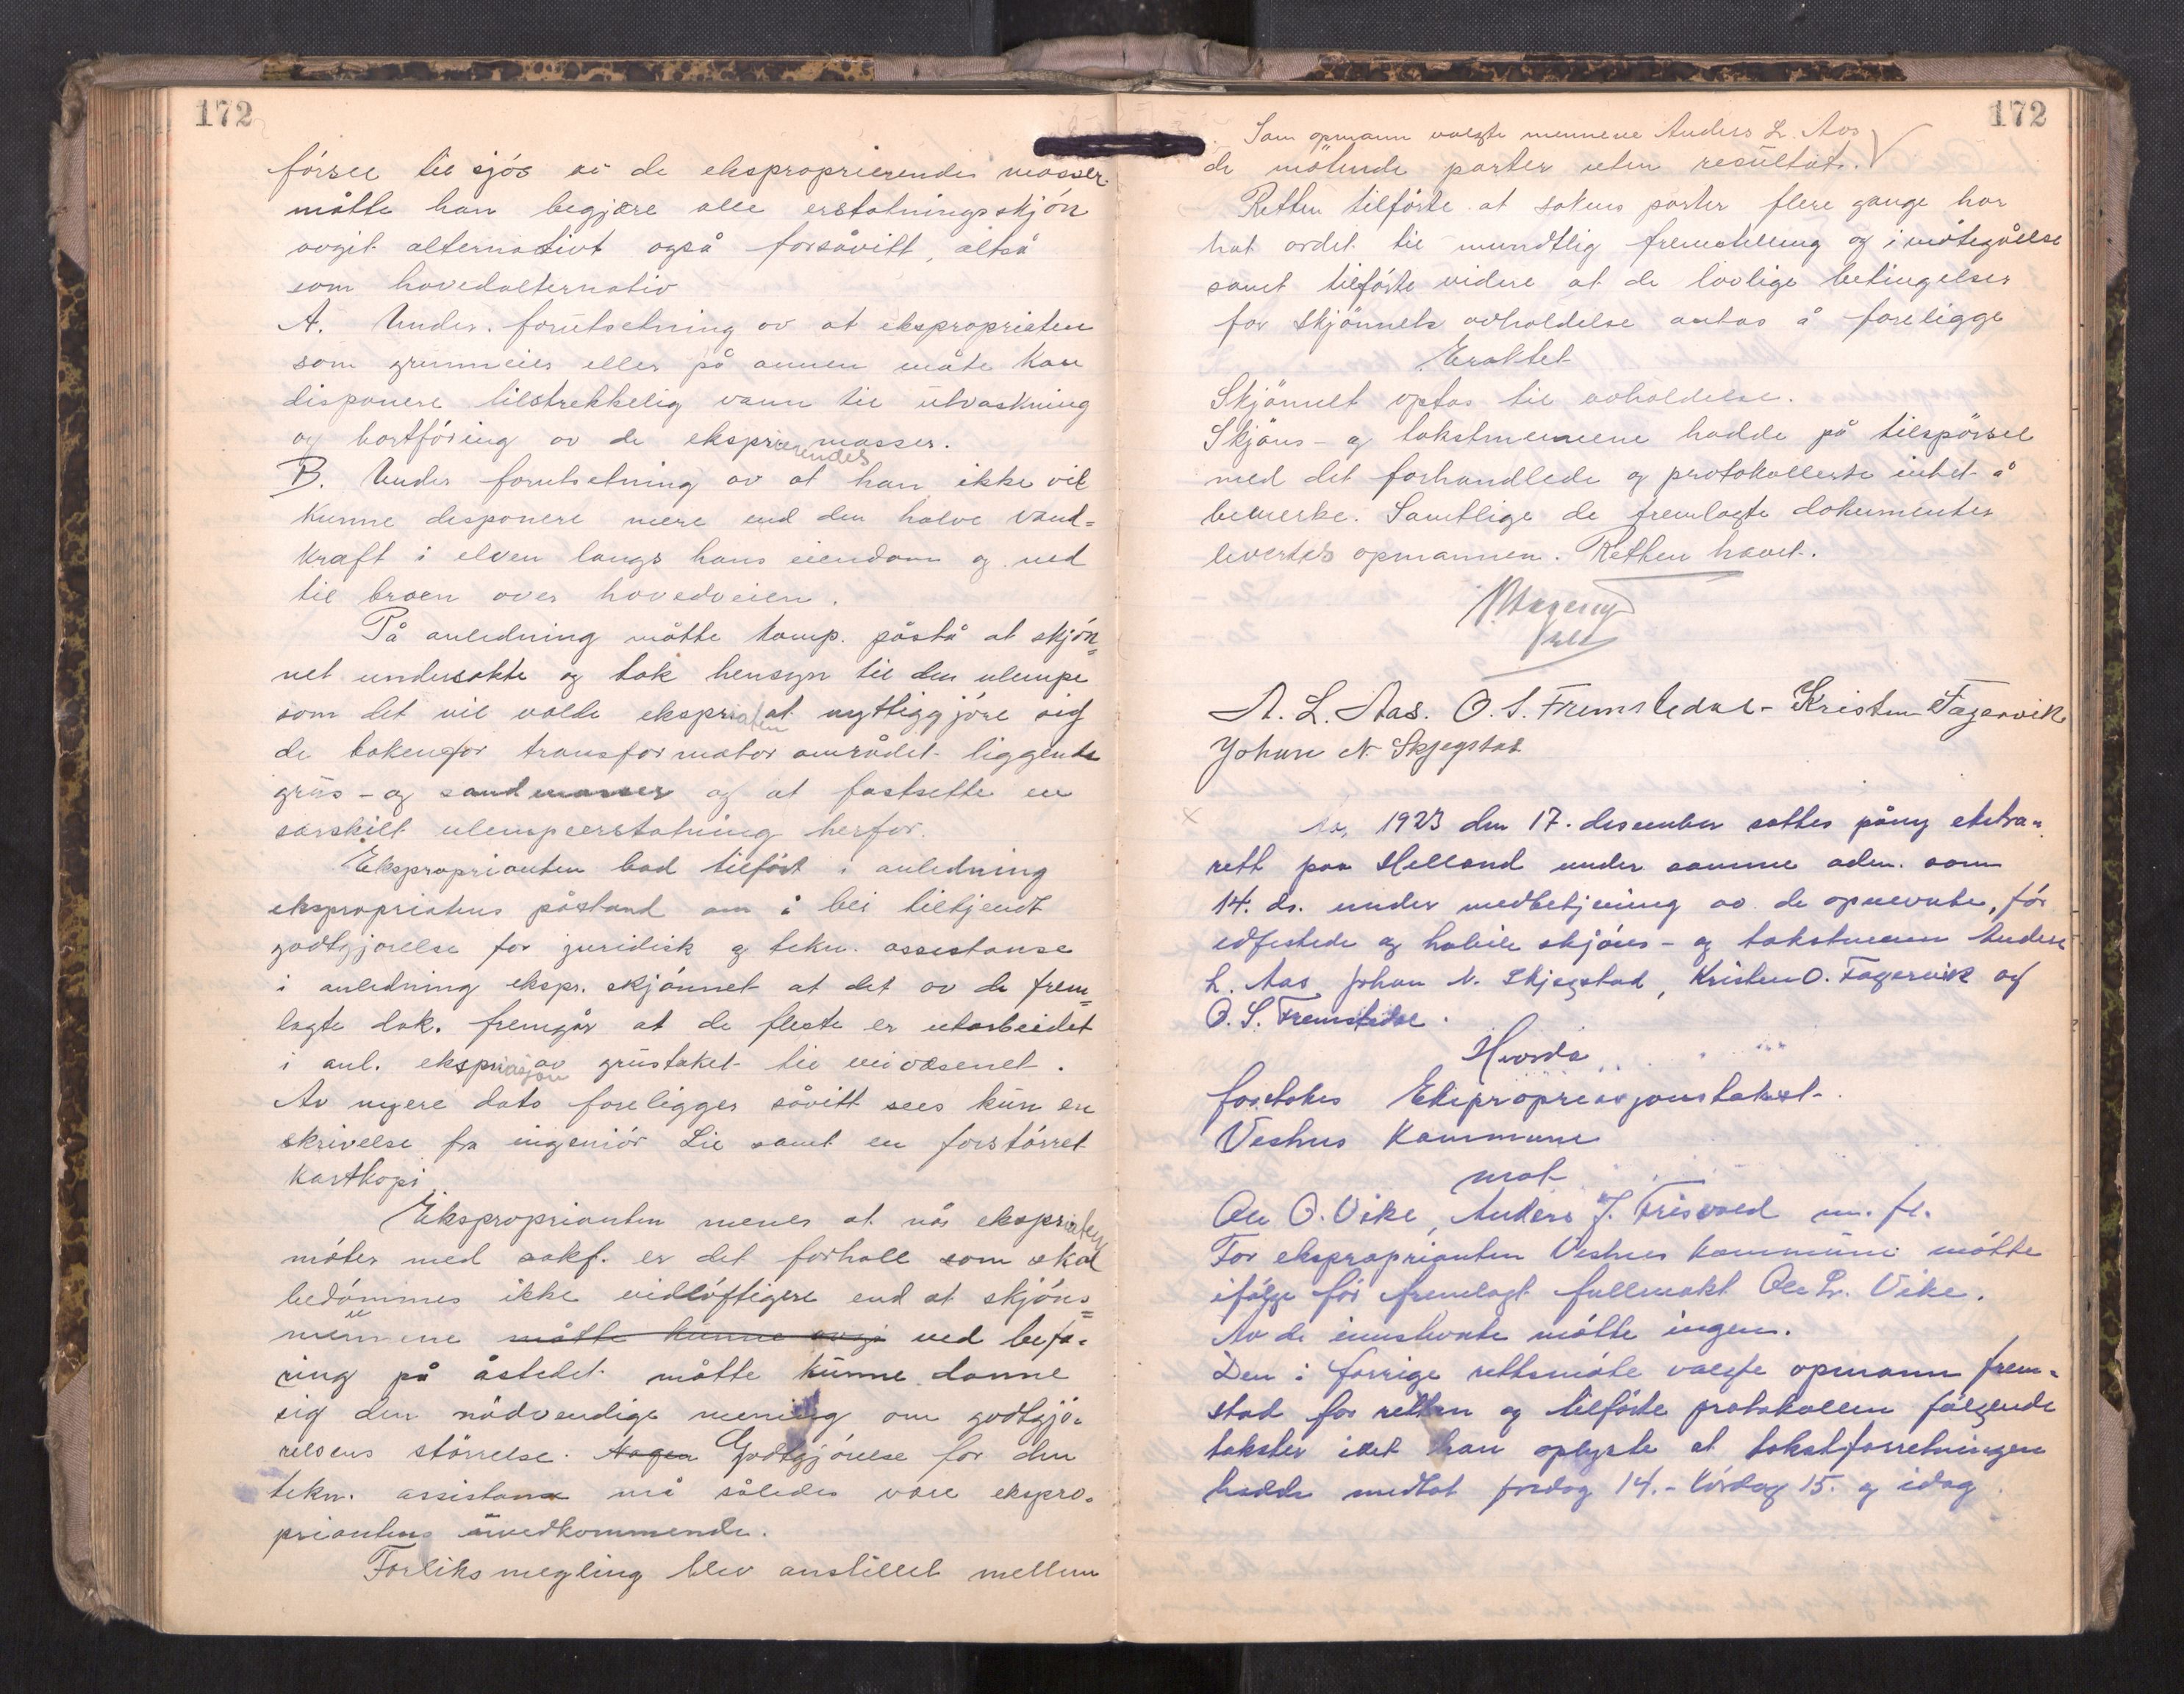 172
försel til sjös av de eksproprierendes masser
måtte han begjære alle erstatningsskjön
avgit alternativt også forsåvitt, altså
som hovedalternativ
A. Under forutsetning av at ekspropriaten
som grunneier eller på annen måte kan
disponere tilstrekkelig vann til utvaskning
og bortföring av de ekspr.ierendes masser.
B. Under forutsetning av at han ikke vil
kunne disponere mere end den halve vand=
kraft i elven langs hans eiendom og ned
til broen over hovedveien.
På anledning måtte komp. påstå at skjön=
net undersøkte og tok hensyn til den ulempe
som det vil volde ekspriaten at nyttiggjöre sig
de bakenfor transformator området liggende
grus- og sandmasser og at fastsette en
særskilt ulempeerstatning herfor.
Eksproprianten bad tilfört i anledning
ekspropriatens påstand om å bli tilkjendt
godtgjørelse for juridisk og tekn. assistanse
i anledning ekspr. skjönnet at det av de frem=
lagte dok. fremgår at de fleste er utarbeidet
i anl. ekspriasjon av grustaket til veivæsenet.
Av nyere dato foreligger såvitt sees kun en
skrivelse fra ingeniör Lie samt en forstörret
kartkopi
Eksproprianten mener at når ekspriaten
möter med sakf. er det forhold som skal
bedömmes ikke vidlöftigere end at skjöns=
mennene måtte kunne avgi ved befa=
ring på åstedet måtte kunne danne
sig den nödvendige mening om godtgjö=
relsens störrelse. Nogen Godtgjörelse for den
tekn. assistanse må således være ekspro=
priantens uvedkommende.
Forliksmegling blev anstillet mellem
172
Som opmann valgte mennene Anders L. Aas
de mötende parter uten resultat.
Retten tilförte at sakens parter flere gange har
hat ordet til mundtlig fremstilling og imötegåelse
samt tilförte videre at de lovlige betingelser
for skjönnets avholdelse antas å foreligge
Eraktet
Skjönnet optas til avholdelse.
Skjöns- og takstmennene hadde på tilspörsel
med det forhandlede og protokollerte intet å
bemerke. Samtlige de fremlagte dokumenter
levertes opmannen. Retten hævet.
A. L. Aas. O. S. Fremstedal - Kristen Fagervik
Johan N. Skjegstad
År 1923 den 17. desember sattes påny ekstra=
rett paa Helland under samme adm. som
14. ds. under medbetjening av de opnevnte, för
edfestede og habile skjöns- og takstmenn Anders
L. Aas, Johan N. Skjegstad, Kristen O. Fagervik og
O. S. Fremstedal.
Hvorda
foretokes Ekspropriasjonstakst
Veshus Kommune
mot
Ole O. Vike, Anders J. Frisvold m. fl.
For eksproprianten Veshus kommune mötte
ifölge för fremlagt fullmakt Ole Pr. Vike.
Av de innstevnte mötte ingen.
Den i forrige rettsmöte valgte opmann frem=
stod for retten og tilförte protokollen fölgende
takster idet han oplyste at takstforretningen
hadde medtat fredag 14. - lördag 15. og idag